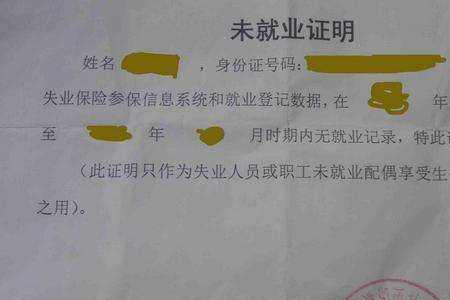 未就业证明
姓名 ，身份证号码：
失业保险参保信息系统和就业登记数据，在 年
至 年 月时期内无就业记录，特此
（此证明只作为失业人员或职工未就业配偶享受生
之用）。